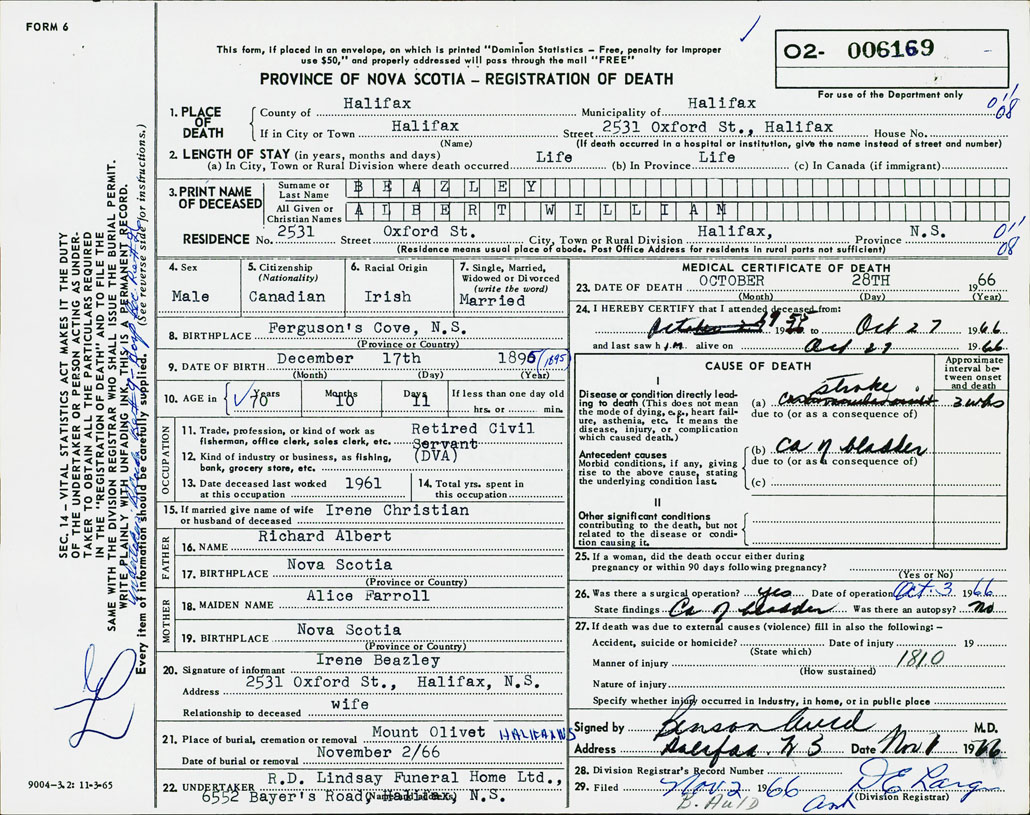 FORM 6
This form, if placed in an envelope, on which is printed "Dominion Statistics – Free, penalty for improper
use $50," and properly addressed will pass through the mail "FREE"
PROVINCE OF NOVA SCOTIA – REGISTRATION OF DEATH
O2- 006169
For use of the Department only
1. PLACE OF DEATH
County of Halifax Municipality of Halifax
If in City or Town Halifax Street 2531 Oxford St., Halifax House No.
(Name) (If death occurred in a hospital or institution, give the name instead of street and number)
011
08
2. LENGTH OF STAY (in years, months and days)
(a) In City, Town or Rural Division where death occurred Life (b) In Province Life (c) In Canada (if immigrant)
3. PRINT NAME OF DECEASED
Surname or Last Name BEAZLEY
All Given or Christian Names ALBERT WILLIAM
RESIDENCE No. 2531 Street Oxford St. City, Town or Rural Division Halifax, Province N.S.
(Residence means usual place of abode. Post Office Address for residents in rural parts not sufficient)
011
08
4. Sex
Male
5. Citizenship
(Nationality)
Canadian
6. Racial Origin
Irish
7. Single, Married,
Widowed or Divorced
(write the word)
Married
8. BIRTHPLACE Ferguson's Cove, N.S.
(Province or Country)
9. DATE OF BIRTH December 17th 1895 (1895)
(Month) (Day) (Year)
10. AGE in Years 70 Months 10 Days 11 If less than one day old
hrs. or min.
OCCUPATION
11. Trade, profession, or kind of work as
fisherman, office clerk, sales clerk, etc. Retired Civil
Servant
12. Kind of industry or business, as fishing,
bank, grocery store, etc. (DVA)
13. Date deceased last worked
at this occupation 1961
14. Total yrs. spent in
this occupation
15. If married give name of wife
or husband of deceased Irene Christian
FATHER
16. NAME Richard Albert
17. BIRTHPLACE Nova Scotia
(Province or Country)
MOTHER
18. MAIDEN NAME Alice Farroll
19. BIRTHPLACE Nova Scotia
(Province or Country)
20. Signature of informant Irene Beazley
Address 2531 Oxford St., Halifax, N.S.
Relationship to deceased wife
21. Place of burial, cremation or removal Mount Olivet HALIFAX NS
Date of burial or removal November 2/66
22. UNDERTAKER R.D. Lindsay Funeral Home Ltd.,
6552 Bayer's Road, Halifax, N.S.
(Name and address)
MEDICAL CERTIFICATE OF DEATH
23. DATE OF DEATH OCTOBER 28TH 1966
(Month) (Day) (Year)
24. I HEREBY CERTIFY that I attended deceased from:
1955 to Oct 27 1966
and last saw h im alive on Oct 27 1966
CAUSE OF DEATH
Approximate
interval between
onset
and death
I
Disease or condition directly leading
to death (This does not mean
the mode of dying, e.g., heart failure,
asthenia, etc. It means the
disease, injury, or complication
which caused death.)
(a) stroke 3 wks
due to (or as a consequence of)
Antecedent causes
Morbid conditions, if any, giving
rise to the above cause, stating
the underlying condition last.
(b) Ca of bladder
due to (or as a consequence of)
(c)
II
Other significant conditions
contributing to the death, but not
related to the disease or condition
causing it.
25. If a woman, did the death occur either during
pregnancy or within 90 days following pregnancy?
(Yes or No)
26. Was there a surgical operation? yes Date of operation Oct. 3 1966
State findings Ca of bladder Was there an autopsy? No
27. If death was due to external causes (violence) fill in also the following: –
Accident, suicide or homicide? Date of injury 19
(State which)
Manner of injury 1810
(How sustained)
Nature of injury
Specify whether injury occurred in industry, in home, or in public place
Signed by Benson Auld M.D.
Address Halifax. N S Date Nov 1 1966
28. Division Registrar's Record Number
29. Filed Nov 2 1966
B. Auld
(Division Registrar)
SEC. 14 – VITAL STATISTICS ACT MAKES IT THE DUTY
OF THE UNDERTAKER OR PERSON ACTING AS UNDERTAKER
TO OBTAIN ALL THE PARTICULARS REQUIRED
IN THE "REGISTRATION OF DEATH" AND TO FILE THE
SAME WITH THE DIVISION REGISTRAR WHO SHALL ISSUE THE BURIAL PERMIT.
WRITE PLAINLY WITH UNFADING INK, THIS IS A PERMANENT RECORD.
Every item of information should be carefully supplied. (See reverse side for instructions.)
9004-3.2: 11-3-65